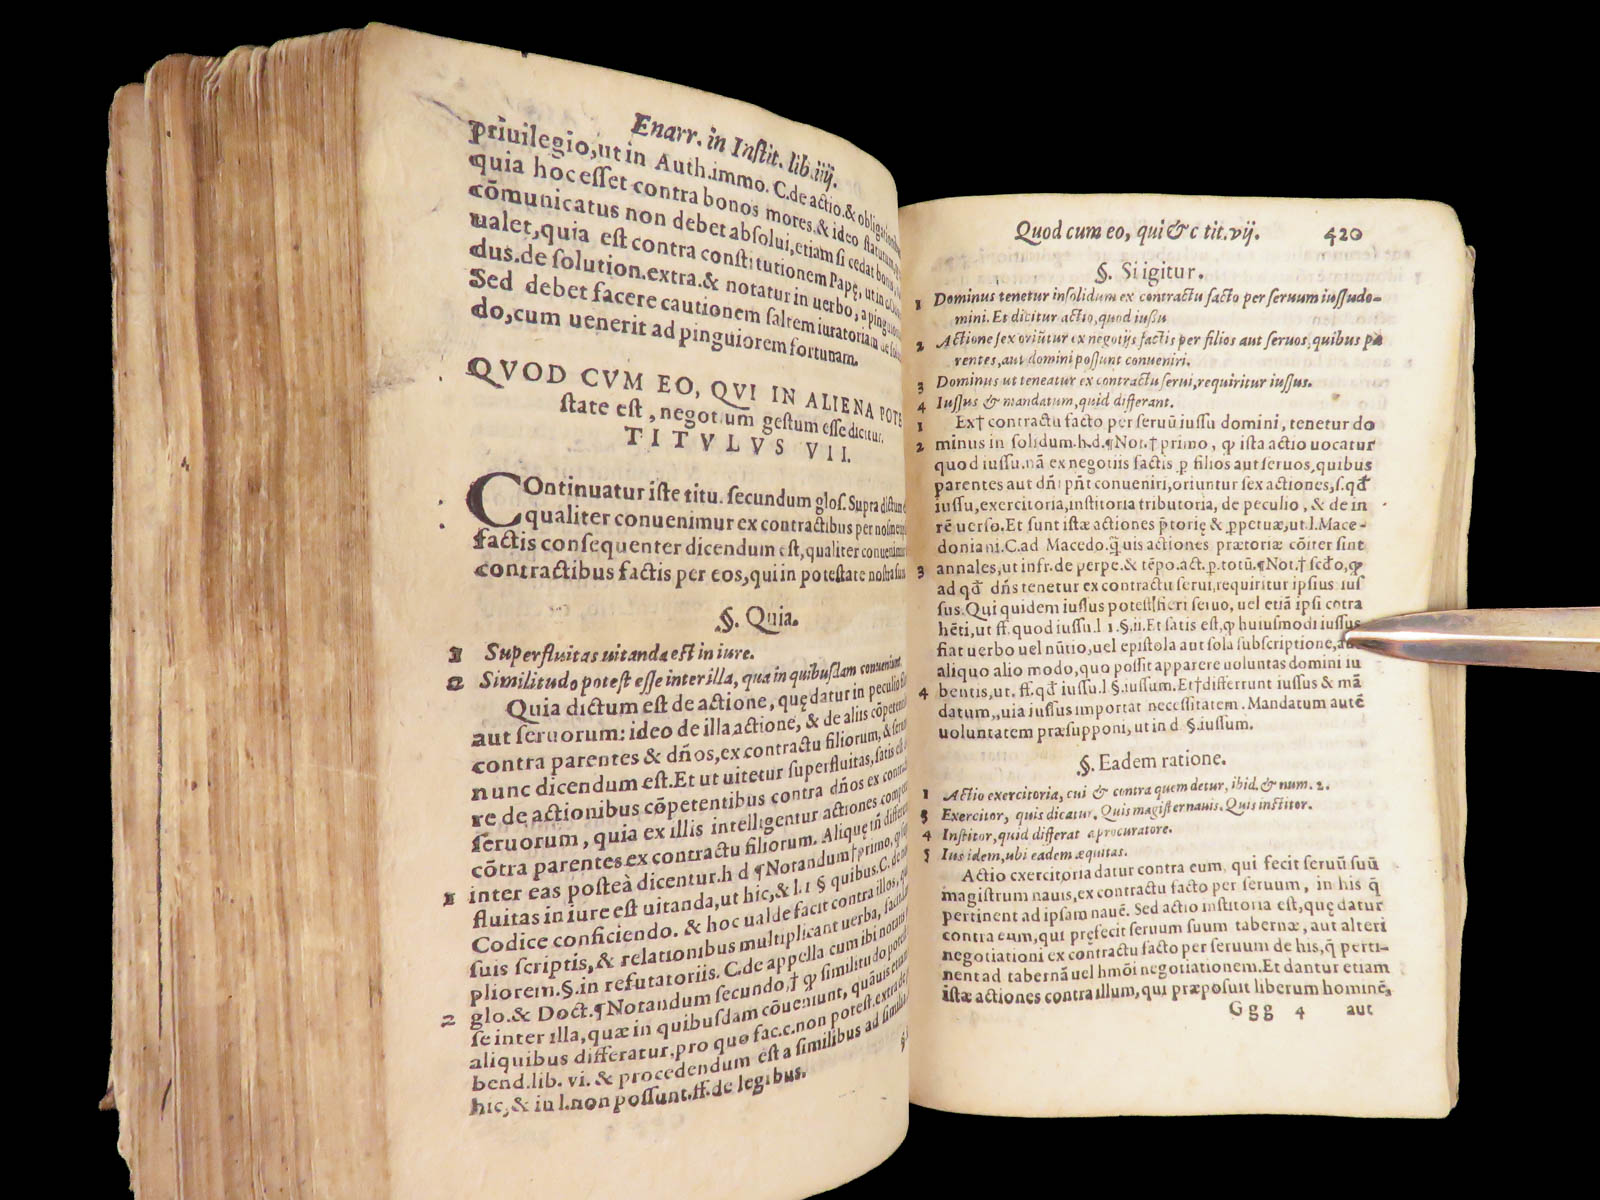 Enarr. in Inſtit. lib. iiij.
priuilegio, ut in Auth. immo. C. de actio. & obligationibus
quia hoc eſſet contra bonos mores. & ideo ſtatutum
cōmunicatus non debet abſolui, etiam ſi cedat bonis
ualet, quia eſt contra conſtitutionem Papę, ut in
dus. de ſolution. extra. & notatur in uerbo, a pinguiorem
Sed debet facere cautionem ſaltem iuratoriam de
do, cum uenerit ad pinguiorem fortunam.
QVOD CVM EO, QVI IN ALIENA POTE
ſtate eſt, negotium geſtum eſſe dicitur.
TITVLVS VII.
COntinuatur iſte titu. ſecundum gloſ. Supra dictum
qualiter conuenimur ex contractibus per noſmet
factis conſequenter dicendum eſt, qualiter
contractibus factis per eos, qui in poteſtate noſtra
§. Quia.
1 Superfluitas uitanda eſt in iure.
2 Similitudo poteſt eſſe inter illa, quæ in quibuſdam conueniunt.
Quia dictum eſt de actione, quę datur in peculio
aut ſeruorum: ideo de illa actione, & de aliis cōpetentibus
contra parentes & dños, ex contractu filiorum, &
nunc dicendum eſt. Et ut uitetur ſuperfluitas, ſatis eſt
re de actionibus cōpetentibus contra dños ex
ſeruorum, quia ex illis intelligentur actiones
cōtra parentes ex contractu filiorum. Alique tñ
1 inter eas poſteà dicentur. h d ¶ Notandum † primo,
fluitas in iure eſt uitanda, ut hic, & l. 1 § quibus. C. de
Codice conficiendo. & hoc ualde facit contra illos,
ſuis ſcriptis, & relationibus multiplicant uerba,
pliorem. §. in refutatoriis. C. de appella cum ibi notatis
2 glo. & Doct. ¶ Notandum ſecundo, † ꝙ ſimilitudo
ſe inter illa, quæ in quibuſdam cōueniunt, quāuis
aliquibus differatur. pro quo fac. c. non poteſt. extra de
bend. lib. vi. & procedendum eſt a ſimilibus ad ſimilia
hic, & in l. non poſſunt. ff. de legibus.
Quod cum eo, qui & c tit. vij. 420
§. Si igitur.
1 Dominus tenetur inſolidum ex contractu facto per ſeruum iuſſu do-
mini. Et dicitur actio, quod iuſſu
2 Actione ſex oriūtur ex negotijs factis per filios aut ſeruos, quibus pa
rentes, aut domini poſſunt conueniri.
3 Dominus ut teneatur ex contractu ſerui, requiritur iuſſus.
4 Iuſſus & mandatum, quid differant.
1 Ex † contractu facto per ſeruū iuſſu domini, tenetur do
2 minus in ſolidum. h. d. ¶ Not. † primo, ꝙ iſta actio uocatur
quod iuſſu. nā ex negotiis factis ꝑ filios aut ſeruos, quibus
parentes aut dñi pñt conueniri, oriuntur ſex actiones, ſ. qđ
iuſſu, exercitoria, inſtitoria tributoria, de peculio, & de in
rē uerſo. Et ſunt iſtæ actiones p̄torię & ꝑpetuæ, ut l. Mace-
doniani. C. ad Macedo. q̄uis actiones prætoriæ cōiter ſint
3 annales, ut infr. de perpe. & tēpo. act. ꝑ totū. ¶ Not. † ſecdo, ꝙ
ad qđ dñs tenetur ex contractu ſerui, requiritur ipſius iuſ
ſus. Qui quidem iuſſus poteſt fieri ſeruo, uel etiā ipſi cōtra
hēti, ut ff. quod iuſſu. l 1. §. ii. Et ſatis eſt, ꝙ huiuſmodi iuſſus
fiat uerbo uel nūtio, uel epiſtola aut ſola ſubſcriptione,
aliquo alio modo, quo poſſit apparere uoluntas domini iu
4 bentis, ut. ff. qđ iuſſu. l §. iuſſum. Et † differrunt iuſſus & mā
datum, uia iuſſus importat neceſſitatem. Mandatum autē
uoluntatem præſupponi, ut in d §. iuſſum.
§. Eadem ratione.
1 Actio exercitoria, cui & contra quem detur, ibid. & num. 2.
3 Exercitor, quis dicatur. Quis magiſter nauis. Quis inſtitor.
4 Inſtitor, quid differat a procuratore.
5 Ius idem, ubi eadem æquitas.
Actio exercitoria datur contra eum, qui fecit ſeruū ſuū
magiſtrum nauis, ex contractu facto per ſeruum, in his q̄
pertinent ad ipſam nauē. Sed actio inſtitoria eſt, quę datur
contra eum, qui pręfecit ſeruum ſuum tabernæ, aut alteri
negotiationi ex contractu facto per ſeruum de his, q̄ perti-
nent ad tabernā uel hmōi negotiationem. Et dantur etiam
iſtæ actiones contra illum, qui præpoſuit liberum hominē,
Ggg 4 aut